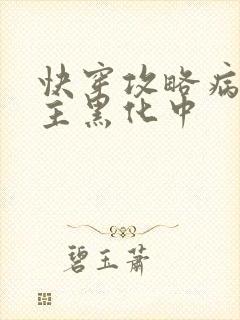 快穿攻略病
主黑化中
碧玉萧